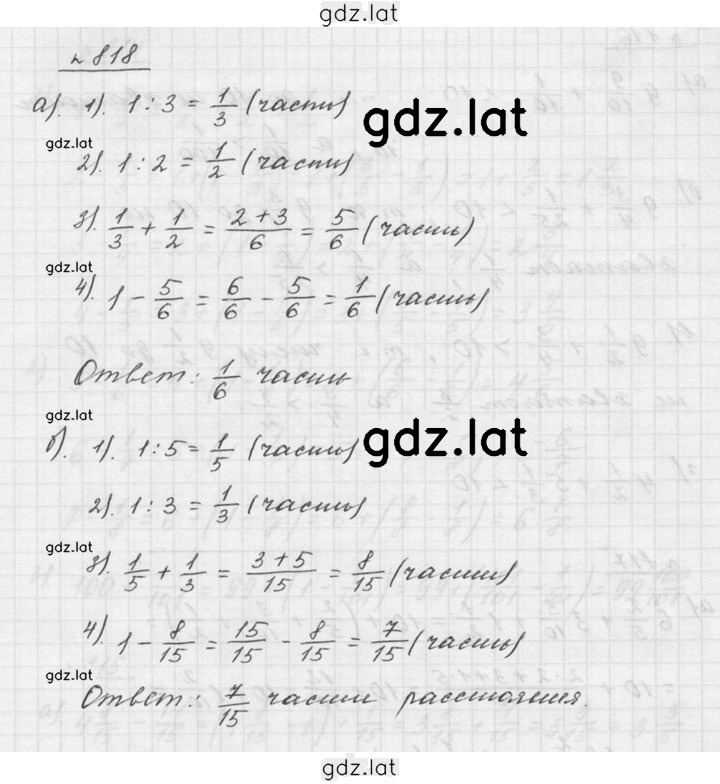 gdz.lat
№ 818
а). 1). 1 : 3 = 1/3 (часть)
gdz.lat
gdz.lat
2). 1 : 2 = 1/2 (часть)
3). 1/3 + 1/2 = (2+3)/6 = 5/6 (часть)
gdz.lat
4). 1 - 5/6 = 6/6 - 5/6 = 1/6 (часть)
Ответ: 1/6 часть
gdz.lat
б). 1). 1 : 5 = 1/5 (часть)
gdz.lat
2). 1 : 3 = 1/3 (часть)
gdz.lat
3). 1/5 + 1/3 = (3+5)/15 = 8/15 (части)
4). 1 - 8/15 = 15/15 - 8/15 = 7/15 (часть)
gdz.lat
Ответ: 7/15 части расстояния.
gdz.lat